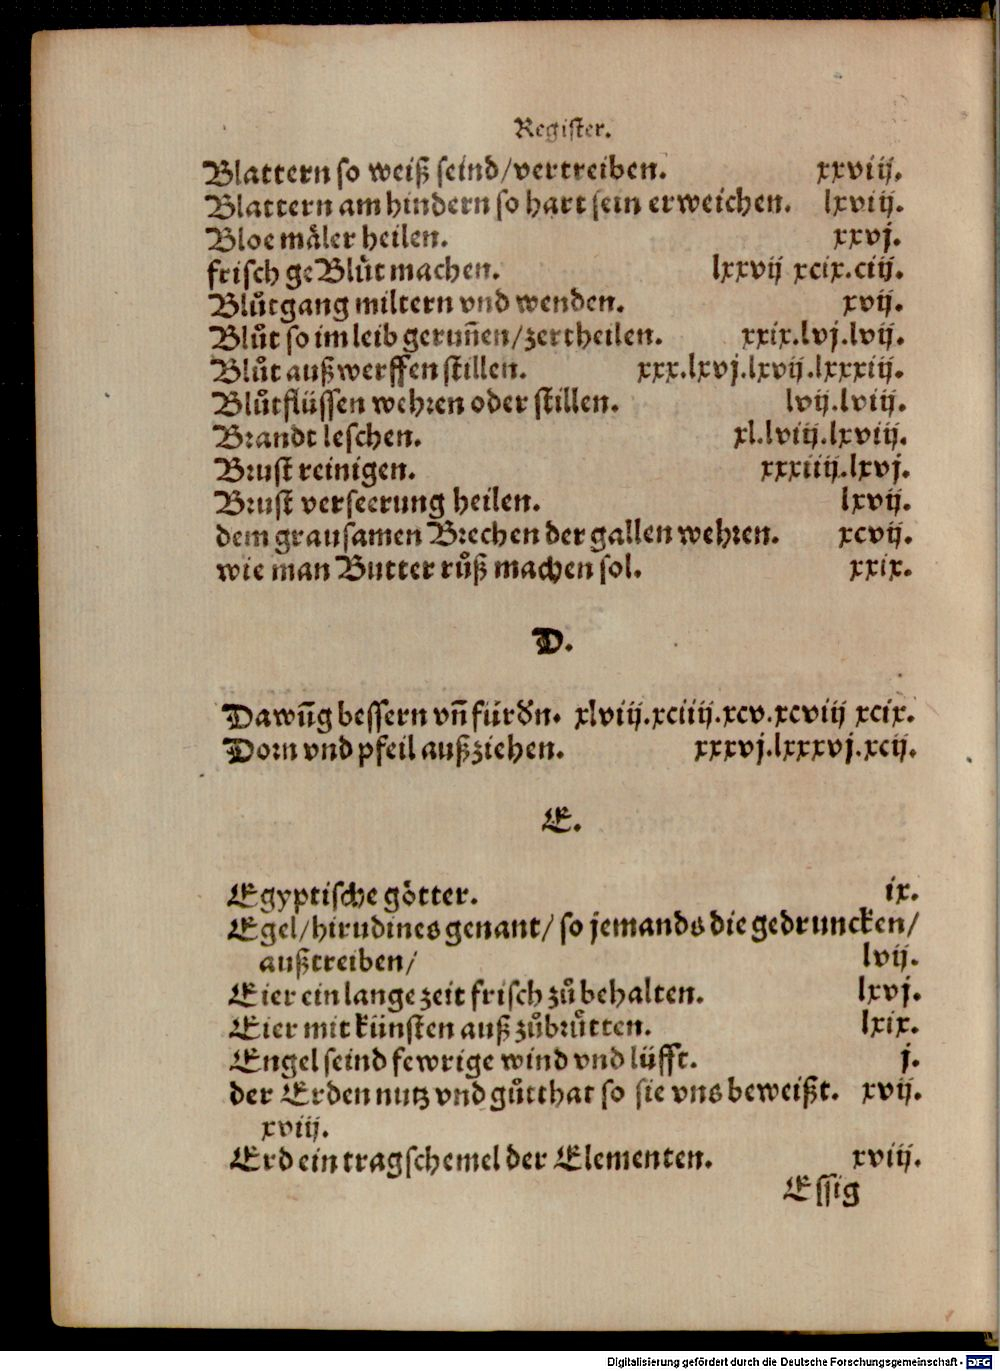 Register.
Blattern so weiß seind/vertreiben. xxviij.
Blattern am hindern so hart sein erweichen. lxviij.
Bloe måler heilen. xxvj.
frisch geBlůt machen. lxxvij xcix.ciij.
Blůtgang miltern vnd wenden. xvij.
Blůt so im leib geruñen/zertheilen. xxix.lvj.lvij.
Blůt außwerffen stillen. xxx.lxvj.lxvij.lxxxiij.
Blůtflüssen wehren oder stillen. lvij.lviij.
Brandt leschen. xl.lviij.lxviij.
Brust reinigen. xxxiiij.lxvj.
Brust verseerung heilen. lxvij.
dem grausamen Brechen der gallen wehren. xcvij.
wie man Butter růß machen sol. xxix.
D.
Dawũg bessern vñ fürdn. xlviij.xciiij.xcv.xcviij xcix.
Dorn vnd pfeil außziehen. xxxvj.lxxxvj.xcij.
E.
Egyptische götter. ix.
Egel/hirudines genant/ so jemands die gedruncken/
außtreiben/ lvij.
Eier ein lange zeit frisch zů behalten. lxvj.
Eier mit künsten auß zůbrůtten. lxix.
Engel seind fewrige wind vnd lüfft. j.
der Erden nutz vnd gůtthat so sie vns beweißt. xvij.
xviij.
Erd ein tragschemel der Elementen. xviij.
Essig
Digitalisierung gefördert durch die Deutsche Forschungsgemeinschaft - DFG